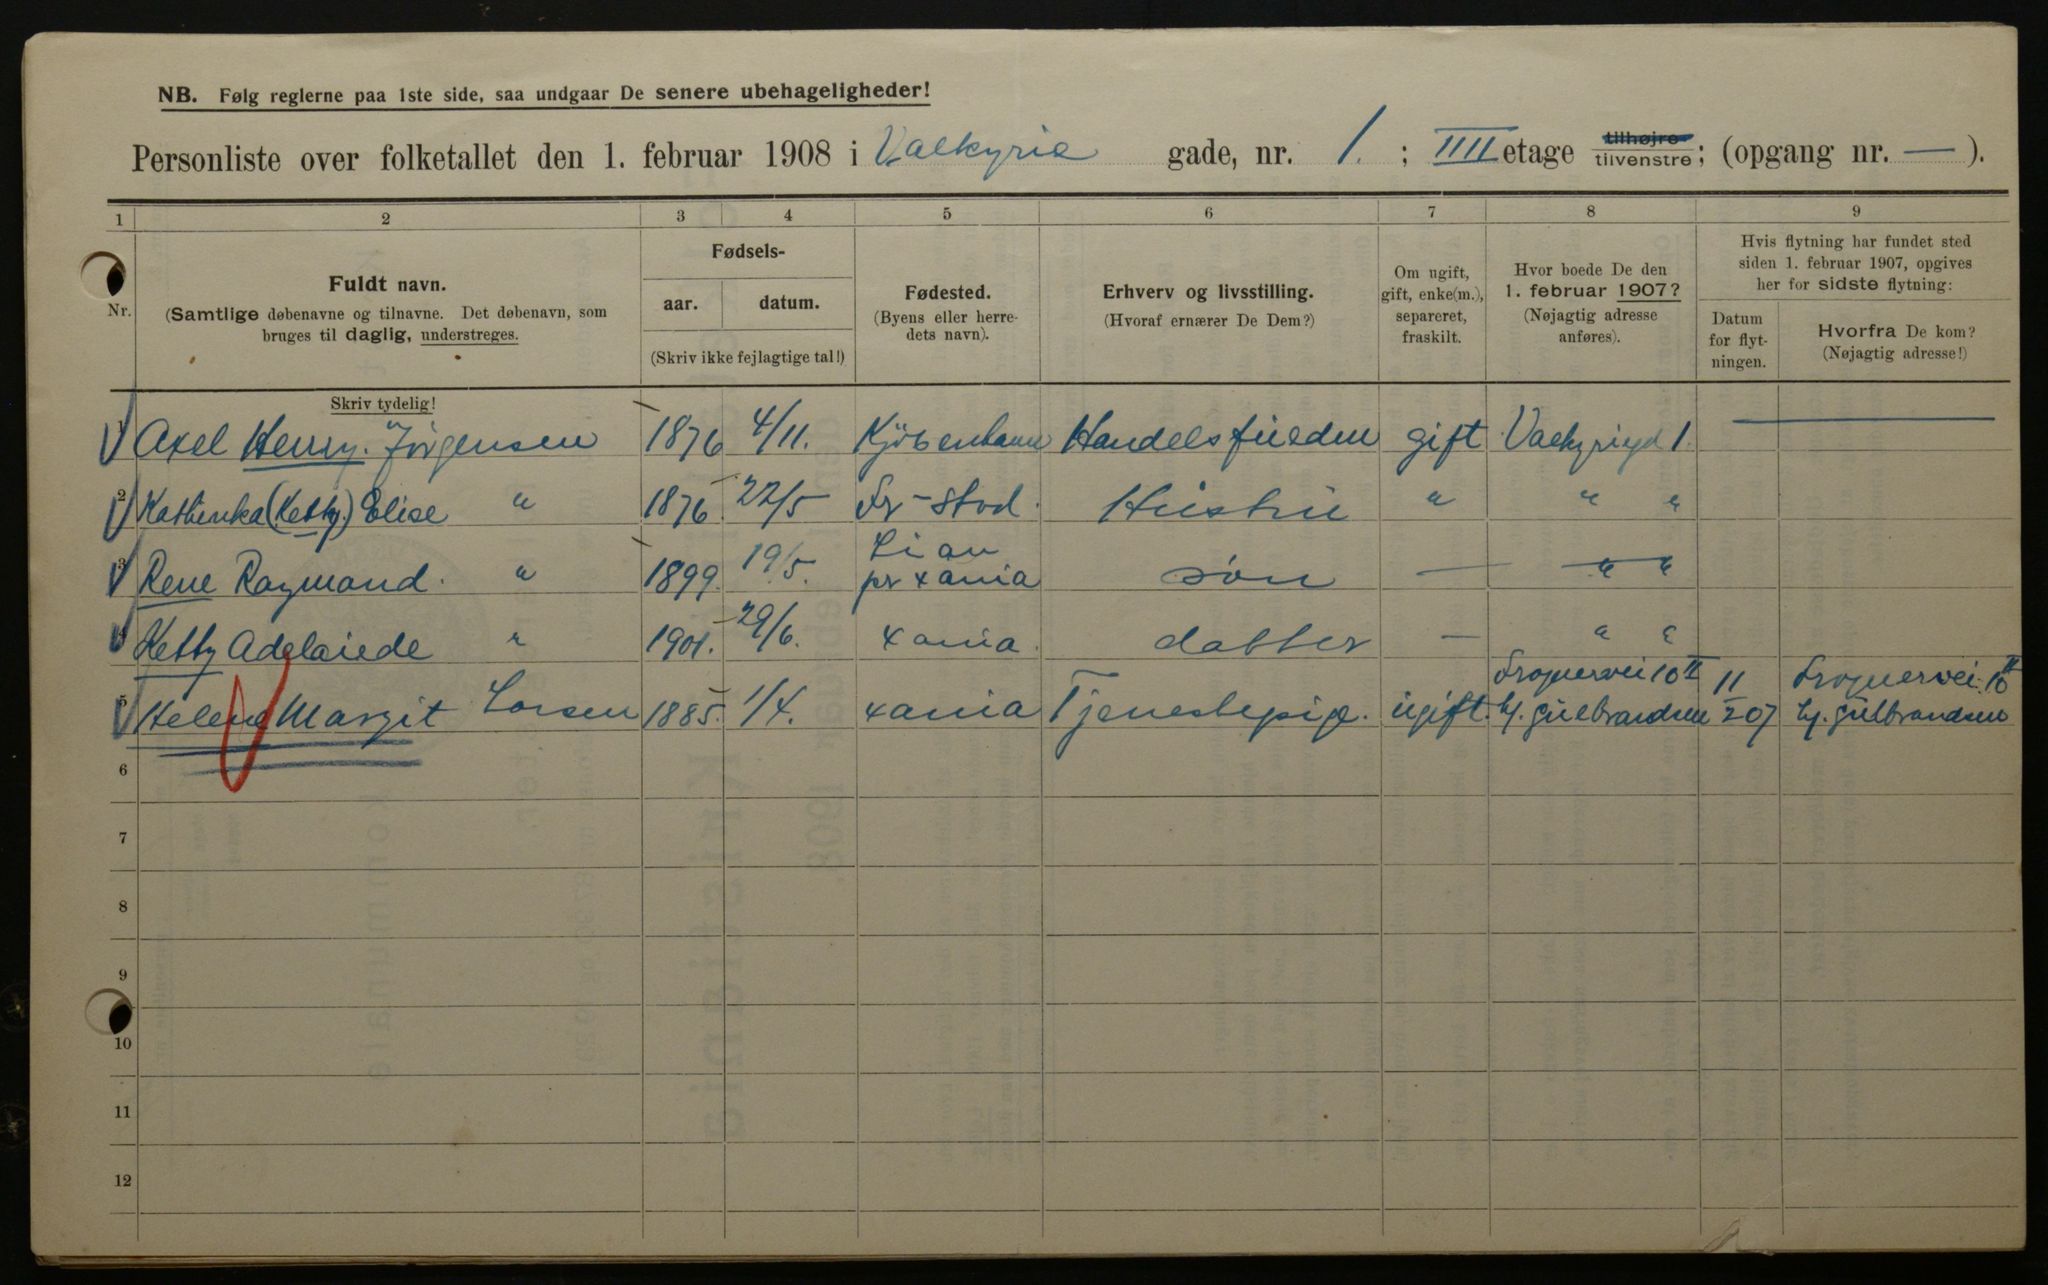 NB. Følg reglerne paa 1ste side, saa undgaar De senere ubehageligheder!
Personliste over folketallet den 1. februar 1908 i Valkyrie gade, nr. 1. ; IIII etage tilhøjre tilvenstre ; (opgang nr. — ).
1 2 3 4 5 6 7 8 9
Nr.
Fuldt navn.
(Samtlige døbenavne og tilnavne. Det døbenavn, som
bruges til daglig, understreges.
Skriv tydelig!
Fødsels-
aar. datum.
(Skriv ikke fejlagtige tal!)
Fødested.
(Byens eller herre-
dets navn).
Erhverv og livsstilling.
(Hvoraf ernærer De Dem?)
Om ugift,
gift, enke(m.),
separeret,
fraskilt.
Hvor boede De den
1. februar 1907?
(Nøjagtig adresse
anføres).
Hvis flytning har fundet sted
siden 1. februar 1907, opgives
her for sidste flytning:
Datum
for flyt-
ningen.
Hvorfra De kom?
(Nøjagtig adresse!)
1 Axel Henry. Jörgensen 1876 4/11. Kjöbenhavn Handelsfuldm gift Valkyriegd 1. —
2 Kathinka (Ketty.) Elise " 1876 22/5 Fr-stad. Hustru " " "
3 Rene Raymond. " 1899. 19/5. Lian pr xania søn — " "
4 Ketty Adelaiede " 1901. 29/6. xania. datter — " "
5 Helene Margit Larsen 1885. 1/4. xania Tjenestepige. ugift. Frognervei 10 II hj. Gulbrandsen 11/2 07 Frognervei. 10 II hj. Gulbrandsen
6
7
8
9
10
11
12